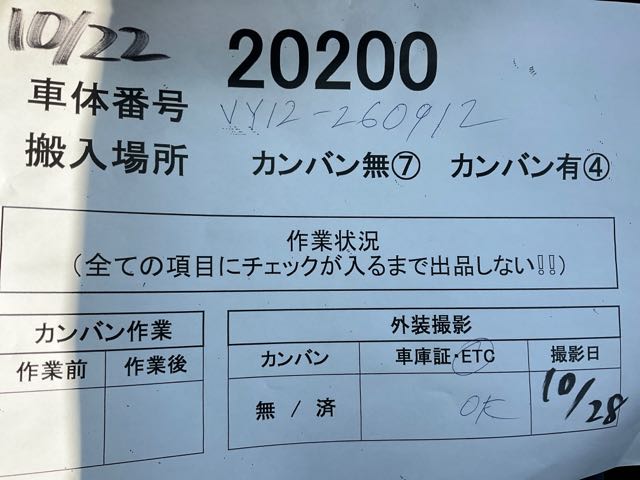 10/22
20200
車体番号 VY12-260912
搬入場所 カンバン無⑦ カンバン有④
作業状況
(全ての項目にチェックが入るまで出品しない!!)
カンバン作業
作業前 作業後
外装撮影
カンバン 車庫証・ETC 撮影日
無 / 済 OK 10/28